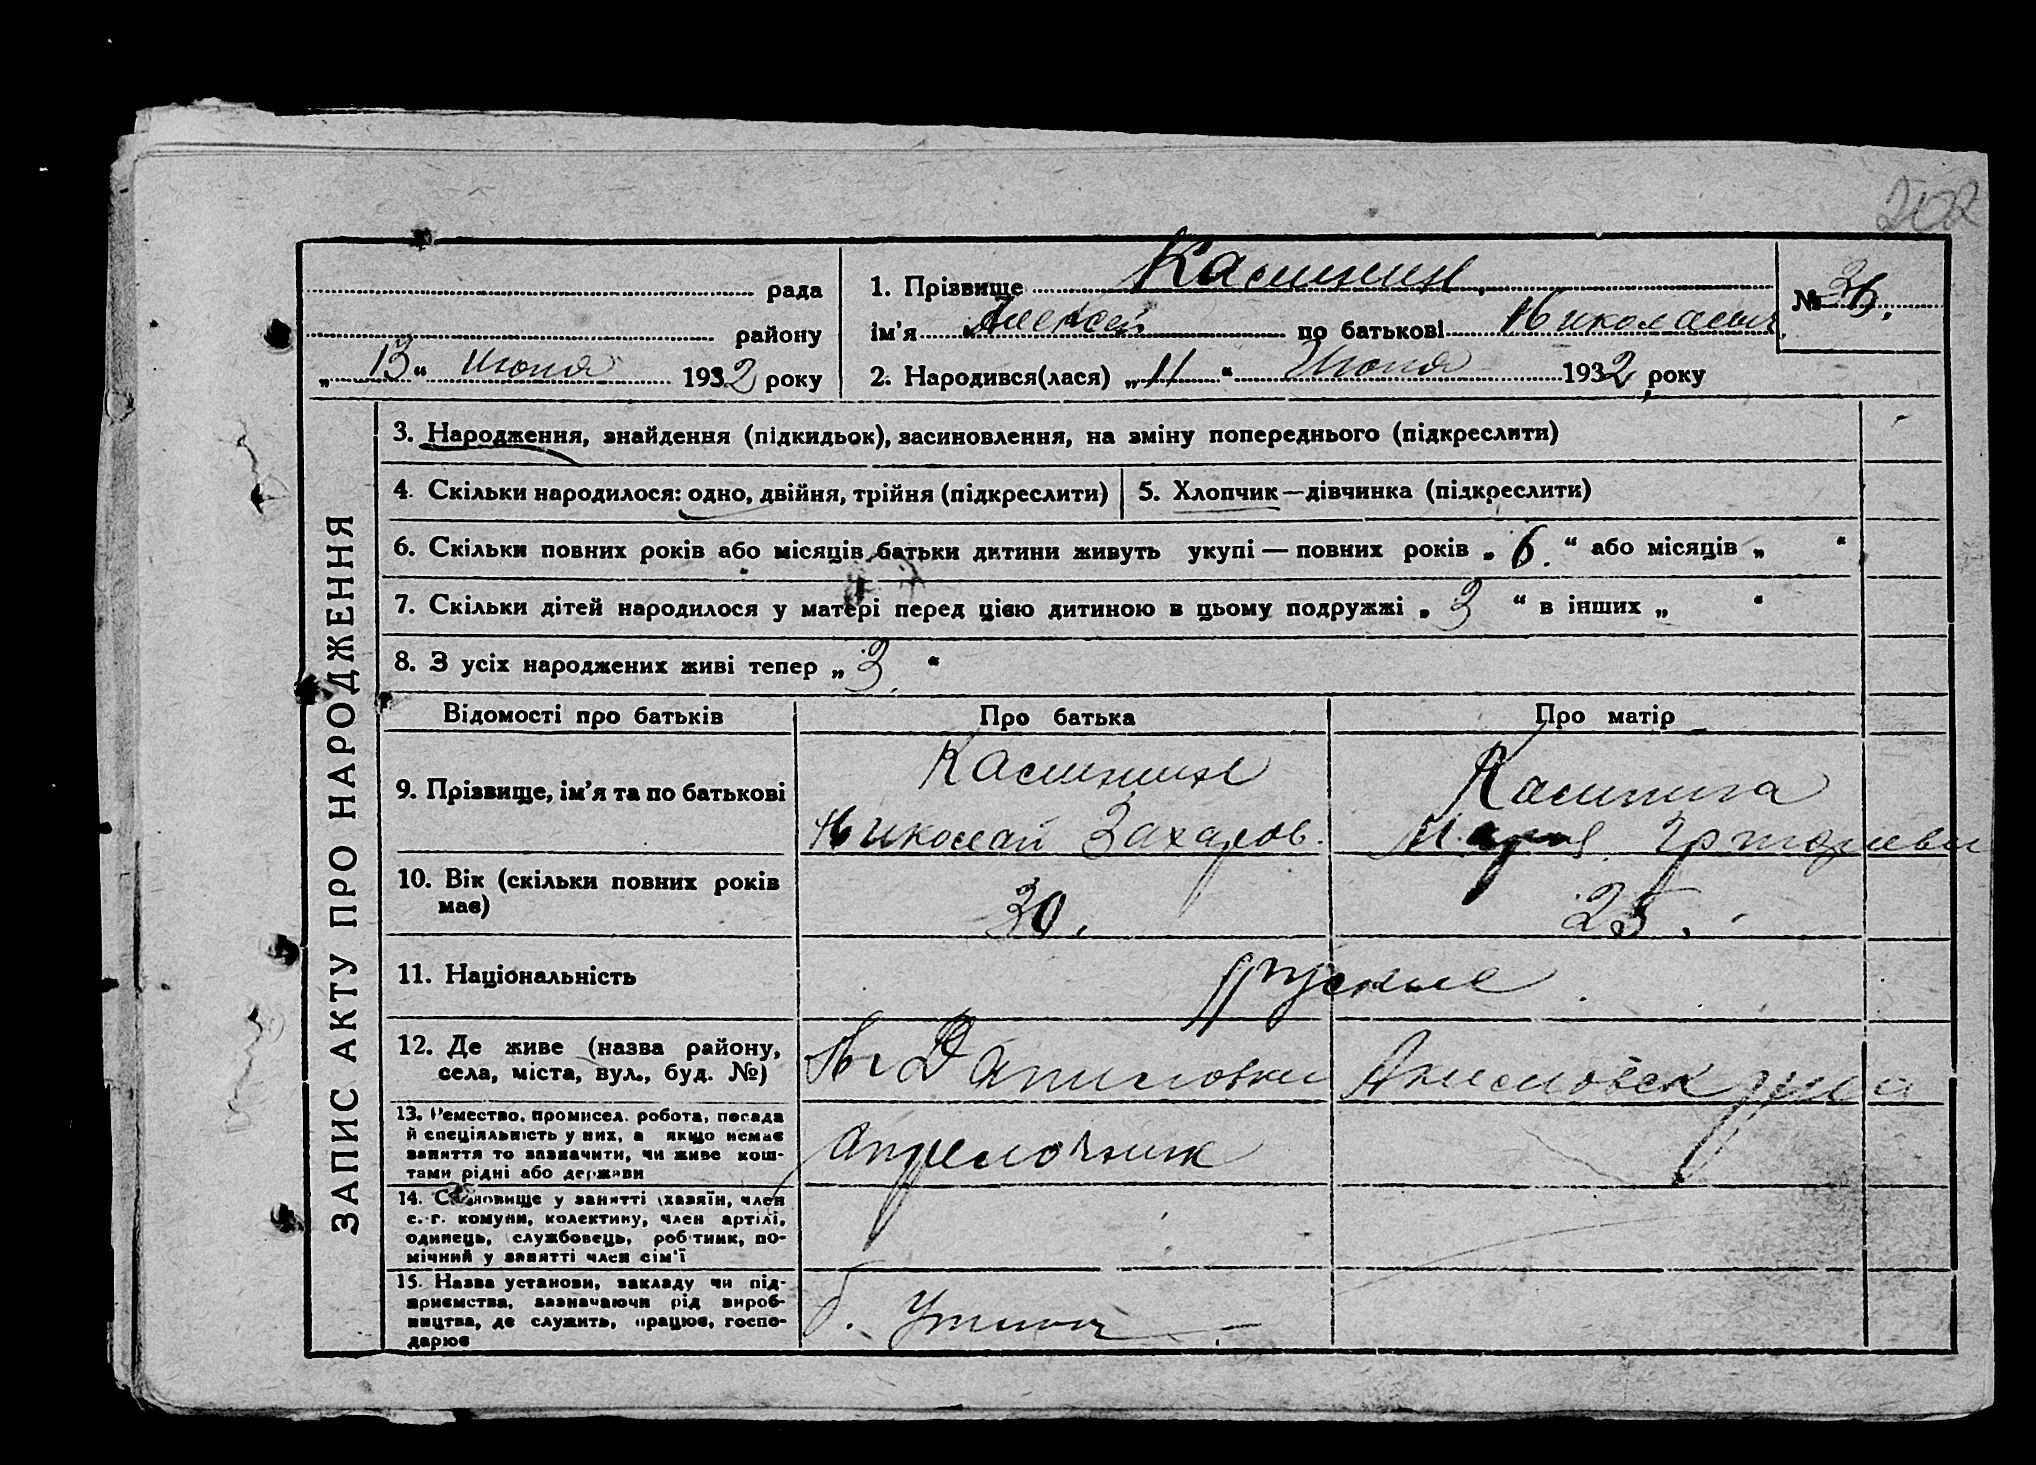 202
рада
району
„ 13 “ июня 1932 року
1. Прізвище Калинин
ім’я Алексей по батькові Николаевич
2. Народився(лася) „ 11 “ Июня 1932 року
№ 36.
ЗАПИС АКТУ ПРО НАРОДЖЕННЯ
3. Народження, знайдення (підкидьок), засиновлення, на зміну попереднього (підкреслити)
4. Скільки народилося: одно, двійня, трійня (підкреслити)
5. Хлопчик—дівчинка (підкреслити)
6. Скільки повних років або місяців батьки дитини живуть укупі — повних років „ 6. “ або місяців „ “
7. Скільки дітей народилося у матері перед цією дитиною в цьому подружжі „ 3 “ в інших „ “
8. З усіх народжених живі тепер „ 3. “
Відомості про батьків
Про батька
Про матір
9. Прізвище, ім’я та по батькові
Калинин
Николай Захаров.
Калинина
Мария
10. Вік (скільки повних років
має)
30.
25.
11. Національність
русские
12. Де живе (назва району,
села, міста, вул., буд. №)
Даниловка
района
13. Ремество, промисел, робота, посада
й спеціяльність у них, а якщо немає
заняття то зазначити, чи живе кош-
тами рідні або держави
14. Становище у занятті (хазяїн, член
с.-г. комуни, колективу, член артілі,
одинець, службовець, робітник, по-
мічний у занятті член сім’ї
15. Назва установи, закладу чи під-
приємства, зазначаючи рід вироб-
ництва, де служить, працює, госпо-
дарює